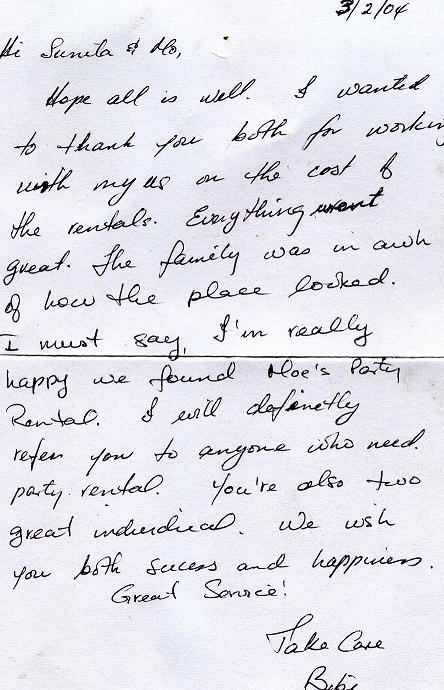 3/2/04
Hi Sunita & Mo,
Hope all is well. I wanted
to thank you both for working
with my us on the cost of
the rentals. Everything went
great. The family was in awh
of how the place looked.
I must say, I'm really
happy we found Moe's Party
Rental. I will definetly
refer you to anyone who need
party rental. You're also two
great individical. We wish
you both sucess and happiness.
Great Service!
Take Care